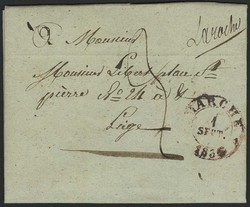 Monsieur
Laroche
Monsieur Libert place St
pierre No 24 à
Liège
MARCHE
1
SEPT.
1836